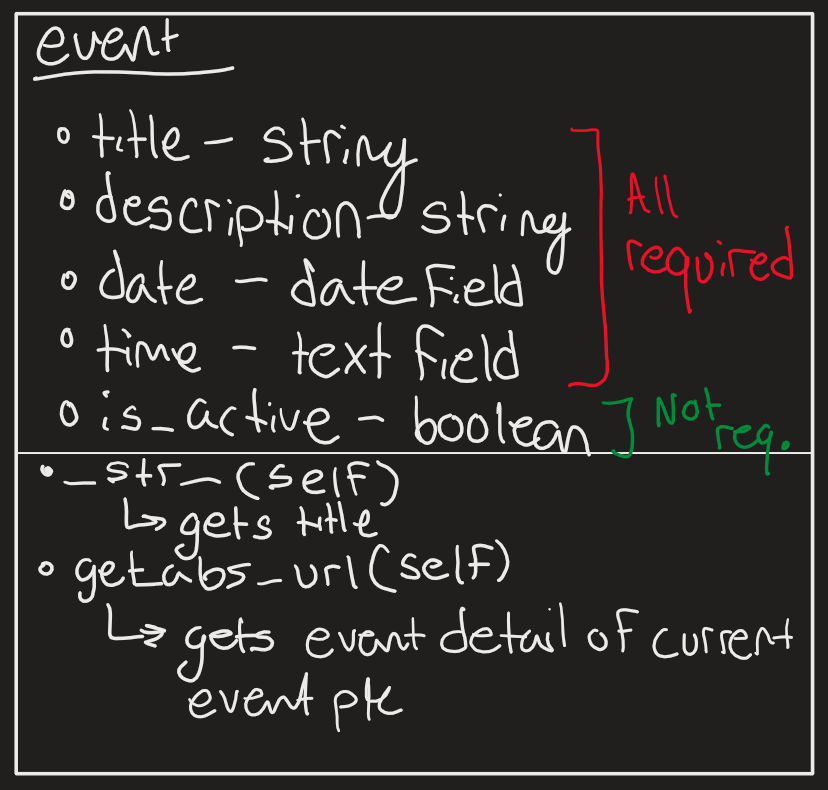 event
title - string
description - string
date - date field
time - text field
All
required
is_active - boolean
Not
req.
_str_(self)
gets title
get_abs_url(self)
gets event detail of current
event pk